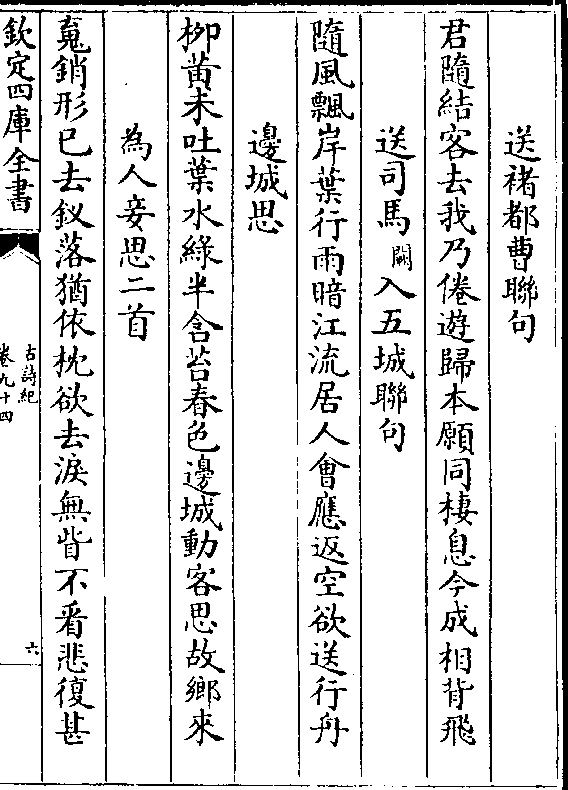 送褚都曹聯句
君隨結客去我乃倦遊歸本願同棲息今成相背飛
送司馬闕入五城聯句
隨風飄岸葉行雨暗江流居人會應返空欲送行舟
邊城思
柳黄未吐葉水緑半含苔春色邊城動客思故鄉來
為人妾思二首
䰟銷形已去釵落猶依枕欲去淚無眥不看悲復甚
欽定四庫全書
古詩紀
卷九十四
六